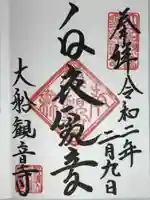 奉拝
令和二年二月九日
白衣観音
大船観音寺